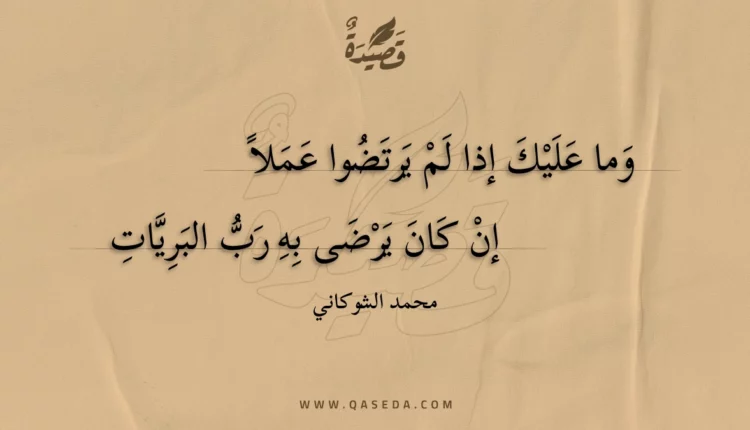 قَصِيْدَةٌ
وَما عَلَيْكَ إذا لَمْ يَرتَضُوا عَمَلاً
إنْ كَانَ يَرْضَى بِهِ رَبُّ البَرِيَّاتِ
محمد الشوكاني
WWW.QASEDA.COM